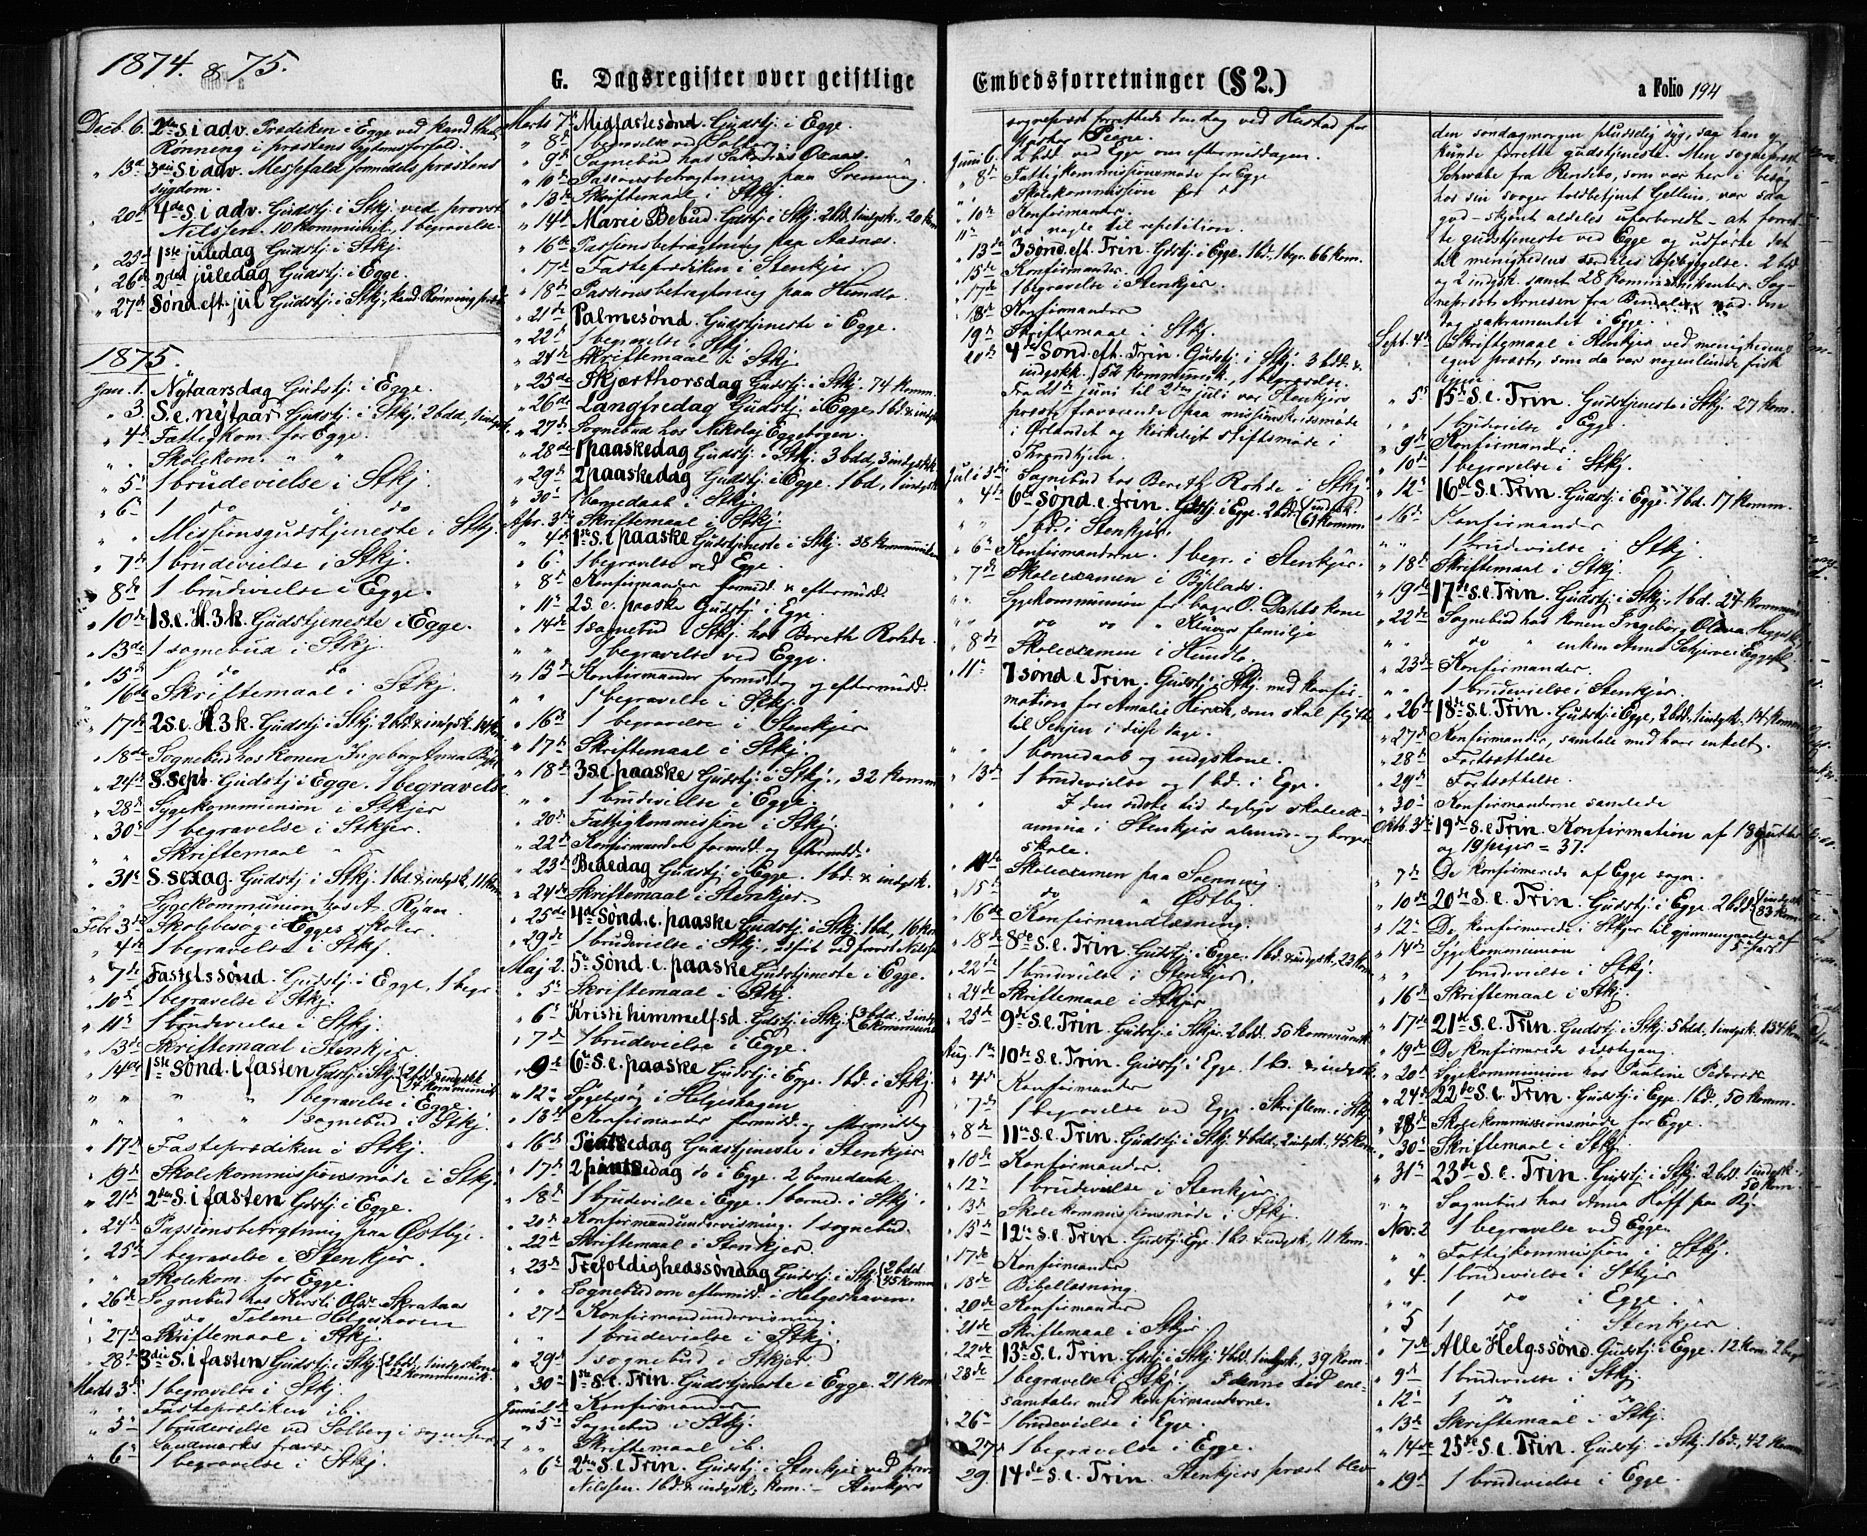 1874. & 75.
G. Dagsregister over geistlige
Decb. 6. 2den S. i adv. Prædiken i Egge ved kand. theol.
Rønning i præstens sygdomsforfald.
" 13de 3die S. i adv. Messefald formedels præstens
sygdom.
" 20de 4de S. i adv. Gudstj. i Stkj. ved provst
Nilssen. 10 kommunik., 1 begravelse
" 25d 1ste juledag Gudstj. i Stkj.
" 26de 2den juledag Gudstj. i Egge.
" 27de Sønd. eft. jul Gudstj. i Stkj., kand. Rønning præd.
1875.
Jan. 1. Nytaarsdag Gudstj. i Egge.
" 3. S. e. nytaar Gudstj. i Stkj. 2 bdd., 1 indgsk.
" 4d Fattigkom. for Egge.
" " Skolekom. " "
" 5t 1 brudevielse i Stkj.
" 6t 1 do i do
" " Missionsgudstjeneste i Stkj.
" 7de 1 brudevielse i Stkj.
8de 1 brudvielse i Egge.
" 10de 1 S. e. H. 3 k. Gudstjeneste i Egge.
" 13de 1 sognebud i Stkj.
" 15d 1 do do
" 16de Skriftemaal i Stkj.
" 17de 2 S. e. H. 3 k. Gudstj. i Stkj. 2 bd. & indgsk. 14 kom
" 18de Sognebud hos konen Ingeborg Anna
" 24de S. sept. Gudstj. i Egge. 1 begravelse
" 28d Sygekommunion i Stkjer
" 30t 1 begravelse i Stkjer.
" " Skriftemaal " "
" 31t S. sexag. Gudstj. i Stkj. 1 bd. & indgsk., 11 kom
" " Sygekommunion hos A. Ryan.
Febr. 3de Skolebesøg i Egges skoler.
" 4de 1 begravelse i Stkj.
" 7de Fastelssønd. Gudstj. i Egge, 1 begr.
" 10de 1 begravelse i Stkj.
" 11t 1 brudevielse i Stkj.
" 13de Skriftemaal i Stenkjer.
" 14de 1ste Sønd. i fasten Gdstj. i Stkj. 2 bd. & indgsk.
kommunik
" " " " 1 begravelse i Egge.
" " " " 1 sognebud i Stkj.
" 17de Fasteprædiken i Stkj.
" 19de Skolekommissionsmøde i Stkj.
" 21de 2den S. i fasten Gdstj. i Egge.
" 24de Passionsbetragtning paa Østbye.
" 25de 1 begravelse i Stenkjer.
" " Skolekom. for Egge.
" 26de Sognebud hos Kirsti Olsd. Skrataas
" " do Telene Helgeshaven
" 27de Skriftemaal i Stkj.
" 28de 3die S. i fasten Gudstj. i Stkj. 2 bdd, 1 indgskone
22 kommunik.
Marts 3d 1 begravelse i Stkj.
" " Fasteprædiken ib.
" 5t 1 brudevielse ved Solberg i sognepræst
Landmarks fravær.
" 6t 1 begravelse i Stkj.
Marts 7de Midfastesønd. Gudstj. i Egge.
" 8de 1 begravelse ved Solberg.
" 9de Sognebud hos
" 10de Passionsbetragtning paa Svenning.
" 13de Skriftemaal i Stkj.
" 14de Marie Bebud. Gdstj. i Stkj. 2 bd. 1 indgsk. 20 kom
" 16de Passionsbetragtning paa Aasnes.
" 17de Fasteprædiken i Stenkjer.
" 18de Passionsbetragtning paa Humdlo.
" 21de Palmesønd. Gudstjeneste i Egge.
" 22de 1 begravelse i Stkj.
" 24de Skriftemaal i Stkj.
" 25de Skjærthorsdag Gudstj. i Stkj. 74 komm.
" 26de Langfredag Gudstj. i Egge, 1 bd. & indgsk
" 27de Sognebud hos Nikolaj Eggebogen.
" 28de 1 paaskedag Gudstj. i Stkj. 3 bdd, 3 indgskk.
" 29de 2 paaskedag Gudstj. i Egge. 1 bd., 1 indgsk
" 30te 1 barnedaab i Stkj.
Apr. 3de Skriftemaal i Stkj.
" 4de 1ste S. e. paaske Gudstjeneste i Stkj. 38 kommunik
" 6t 1 begravelse ved Egge.
" 8de Konfirmander formidd. & eftermidd.
" 11te 2 S. e. paaske Gudstj. i Egge.
" 14de 1 sognebud i Stkj. hos Bereth Rohde.
" " 1 begravelse ved Egge.
" 15de Konfirmander formiddag og eftermidd.
" " 1 begravelse i Stkj.
" 16de 1 begravelse i Stenkjer
" 17de Skriftemaal i Stkj.
" 18de 3 S. e. paaske Gudstj. i Stkj., 32 komm.
" " 1 brudevielse i Egge.
" 20de Fattigkommission i Stkj.
" 22de Konfirmander formidd. og eftermidd.
" 23de Bededag Gudstj. i Egge. 1 bd. & indgsk.
" 24de Skriftemaal i Stenkjer.
" 25de 4de Sønd. e. paaske Gudstj. i Stkj. 1 bd., 16 kom
" 29de 1 brudvielse i Stkj., udført ved provst Nilssen
Maj 2. 5te Sønd. e. paaske Gudstjeneste i Egge.
" 5te Skriftemaal i Stkj.
" 6te Kristi himmelfsd. Gdstj. i Stkj. 3 bdd. 2 indgsk
6 kommunik
" 7de 1 brudevielse i Egge.
" 9de 6te S. e. paaske Gudstj. i Egge. 1 bd. i Stkj.
" 12te Sygebesøg i Helgeshagen
" 13de Konfirmander formidd. og eftermiddg
" 16de Pintsedag Gudstjeneste i Stenkjer.
" 17de 2 pintsedag do i Egge. 2 barnedaabe.
" 18de 1 brudevielse i Egge. 1 barned. i Stkj.
" 20de Konfirmandundervisning. 1 sognebud.
" 22de Skriftemaal i Stenkjer.
" 23de Trefoldighedssøndag Gudstj. i Stkj. 2 bdd
45 komm
" " Sognebud om eftermidd. i Helgeshaven.
" 27de Konfirmandundervisning.
" " 1 brudevielse i Stkj.
" 29de 1 sognebud i Stkjer
" 30te 1ste S. e. Trin. Gudstjeneste i Egge. 21 kom
Juni Konfirmander
" 5te Sognebud i Stkj.
" " Skriftemaal ib.
" 6te 2den S. e. Trin. Gudstj. i Stenkjer ved provst
Nilssen. 1 bd. & indgsk., kom. – Stenkjers
Embedsforretninger (§ 2.)
a Folio 194
sognepræst forrettede den dag ved Hustad for
pastor
Juni 6. 2 bdd. ved Egge om eftermiddagen.
" 8de Fattigkommissionsmøde for Egge
" " Skolekommission for do
" 10de Konfirmander.
" 11te do nogle til repetition.
" 13de 3 sønd. eft. Trin. Gdstj. i Egge. 1 bd. 1 begr. 66 kom.
" 15de Konfirmanter.
" 17de 1 begravelse i Stenkjer.
" 18de Konfirmander
19de Skriftemaal i Stkj.
20de 4de Sønd. eft. Trin. Gudstj. i Stkj. 3 bdd. &
indgskk. 52 kommunik., 1 begravelse.
Fra 21de juni til 2den juli var Stenkjers
præst fraværende paa missionskredsmøde
i Ørlandet og kirkeligt stiftsmøde i
Throndhjem.
Juli 3de Sognebud hos Bereth Rohde i Stkj.
" 4de 6te Sønd. e. trin. Gdstj. i Egge 2 bdd. indgsk.
61 komm
" " 1 bd. i Stenkjer.
" 6te Konfirmanderne. 1 begr. i Stenkjer.
" 7de Skoleexamen i
" " Sygekommunion for bager O. Dahls kone
" " do do " Klüvers familje
" 8de Skoleexamen i Humdlo.
" 11te 7 sønd. e. Trin. Gudstj. i Stkj. med konfir-
mation for Amalie Hirsch, som skal flytte
til Sehjen i disse dage.
" " 1 barnedaab og indgskone.
" 13de 1 brudevielse og 1 bd. i Egge.
" " I den sidste tid daglige skoleex-
amina i Stenkjers almue- og borger-
skole.
" 14de Skoleexamen paa Svenning.
" 15de do " Østby.
" 16de Konfirmandlæsning.
" 18de 8de S. e. Trin. Gudstj. i Egge. 1 bd. & indgsk., 23 kom
" 22de 1 brudevielse i Stenkjer.
" 24de Skriftemaal i Stkjer
" 25de 9de S. e. Trin. Gudstj. i Stkjer. 2 bdd. 50 kommunik
Aug. 1te 10de S. e. Trin. Gudstj. i Egge. 1 bd. & indgsk.
" 4de Konfirmander
" 7de 1 begravelse ved Egge. Skriftem. i Stkj.
" 8de 11te S. e. Trin. Gudstj. i Stkj. 4 bdd., 2 indgsk., 45 kom
" 10de Konfirmander.
" 12te 1 brudevielse i Stenkjer.
" 13de Skolekommissionsmøde i Stkj.
" 15de 12te S. e. Trin. Gudstj. Egge. 1 bd. & indgsk., 11 kom.
" 17de Konfirmander
" 18de Bibellæsning.
" 20de Konfirmander
" 21de Skriftemaal i Stkjer.
" 22de 13de S. e. Trin. Gdstj. i Stkj. 4 bd. 1 indgsk., 39 kom.
" 28de 1 begravelse i Stkj. I denne tid ene-
samtaler med konfirmanderne.
" 26te 1 brudevielse i Egge.
" 27de 1 begravelse i Egge.
29. 14de S. e. Trin. Stenkjers præst blev
den søndagmorgen pludselig syg, saa han ej
kunde forrette gudstjeneste. Men sognepræst
Schwabe fra Rendebo, som var her i besøg
hos sin svoger toldbetjent Gellein, var saa
god – skjønt aldeles uforberedt – at forret-
te gudstjeneste ved Egge og udførte det
til menighedens særdeles opbyggelse. 2 bd.
og 2 indgsk. samt 28 kommunikanter. Sog-
nepræst Arnesen fra Bindalen mod-
tog sakramentet i Egge.
Sept. 4de Skriftemaal i Stenkjer ved menighedens
egen præst, som da var nogenlunde frisk
igjen.
" 5te 15de S. e. Trin. Gudstjeneste i Stkj. 27 kom.
" " 1 brudevielse i Egge.
" 9de Konfirmander.
" 10de 1 begravelse i Stkj.
" 12te 16de S. e. Trin. Gudstj. i Egge. 1 bd. 17 komm.
" 16de Konfirmander
" " 1 brudevielse i Stkj.
" 18de Skriftemaal i Stkj.
" 19de 17de S. e. Trin. Gudstj. i Stkj., 1 bd. 27 kommun
" 22de Sognebud hos konen Ingeborg Olava
" " do " enken Anne Schjerve i Egge
" 23de Konfirmander.
" " 1 brudevielse i Stenkjer.
" 26de 18de S. e. Trin. Gudstj. i Egge, 2 bdd., 1 indgsk., 14 komm
" 27de Konfirmander, samtale med hver enkelt.
" 28de Fortsættelse
" 29de Fortsættelse.
" 30te Konfirmanderne samlede
Oktb. 3de 19de S. e. Trin. Konfirmation af 18 gutter
og 19 piger = 37.
" 7de De konfirmerede af Egge sogn.
" 10de 20de S. e. Trin. Gudstj. i Egge. 2 bdd. indgsk.
83 kom
" 12te De konfirmerede i Stkjer til gjennemgaaelse af
5te part.
" 14de Sygekommunion
" " 1 brudevielse i Stkj.
" 16de Skriftemaal i Stkj.
" 17de 21de S. e. Trin. Gudstj. i Stkj. 5 bdd., 1 indgsk. 134 kom
" 19de De konfirmerede sidstegang.
" 20de Sygekommunion hos Pauline Pedersen
" 24de 22de S. e. Trin. Gudstj. i Egge. 1 bd., 50 komm.
" 28de Skolekommissionsmøde for Egge.
" 30te Skriftemaal i Stkj.
" 31te 23de S. e. Trin. Gudstj. i Stkj. 2 bd. 1 indgsk.
50 kom.
" " Sognebud hos Anna Hoff paa By.
Nov. 2 1 begravelse ved Egge.
" " Fattigkommission i Stkj.
" 4. 1 brudevielse i Stkjer
" " 1 do i Egge.
" 5 1 do i Stenkjer
" 7de Alle Helgssønd. Gudstj. i Egge. 12 kom. 2 begr
" 9de 1 brudevielse i Stkj.
" 12te 1 " i "
" 13de Skriftemaal i Stkj.
" 14de 25de S. e. Trin. Gudstj. i Stkj. 1 bd., 42 komm
" 19de 1 brudevielse i Egge.